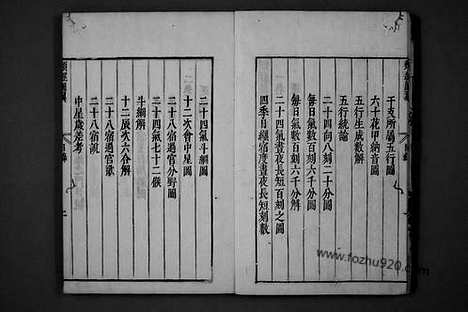 干支所屬五行圖
六十花甲納音圖
五行生成數解
五行統論
二十四向八刻二十分圖
每日氣數百刻六千分圖
每日氣數百刻六千分解
二十四氣晝夜長短百刻之圖
四季日纒宿度晝夜長短刻數
二十四氣斗綱圖
十二次會中星圖
二十八宿過宮分野圖
二十四氣七十二候
斗綱解
十二辰次六合解
二十八宿過宮歌
二十八宿說
中星歲差考
www.fozhu920.com